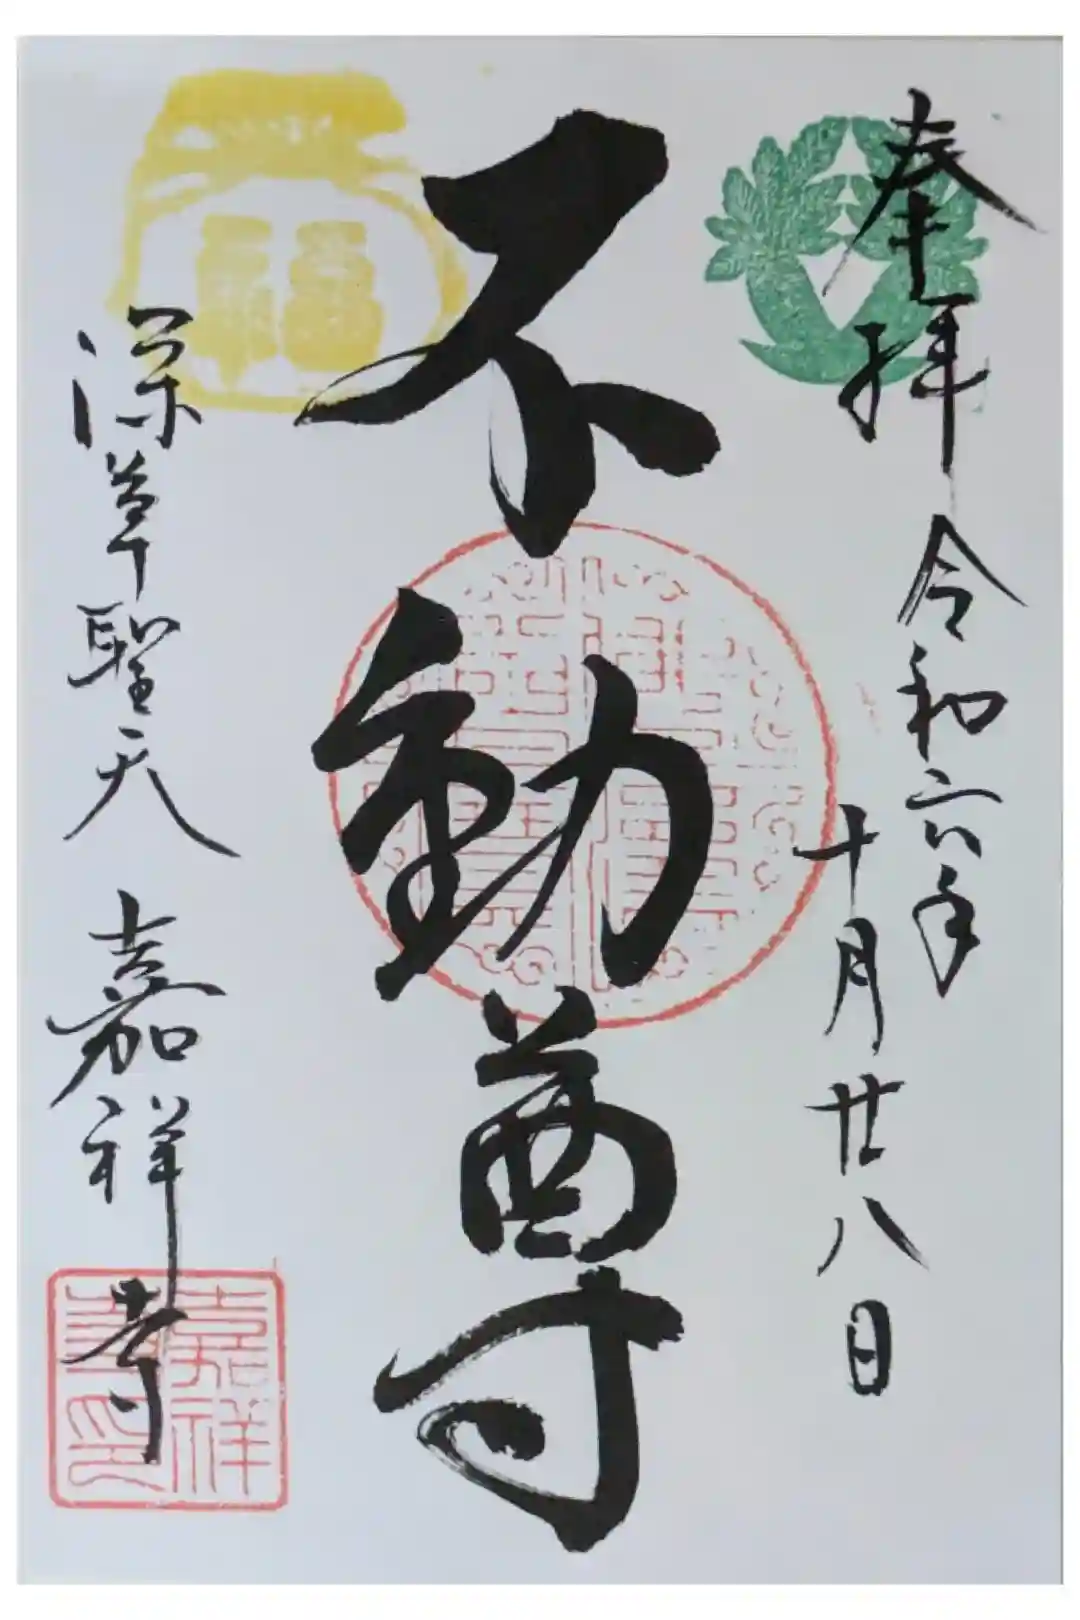 奉拝
令和六年
十月廿八日
不動尊
深草聖天
嘉祥寺
嘉祥
寺印